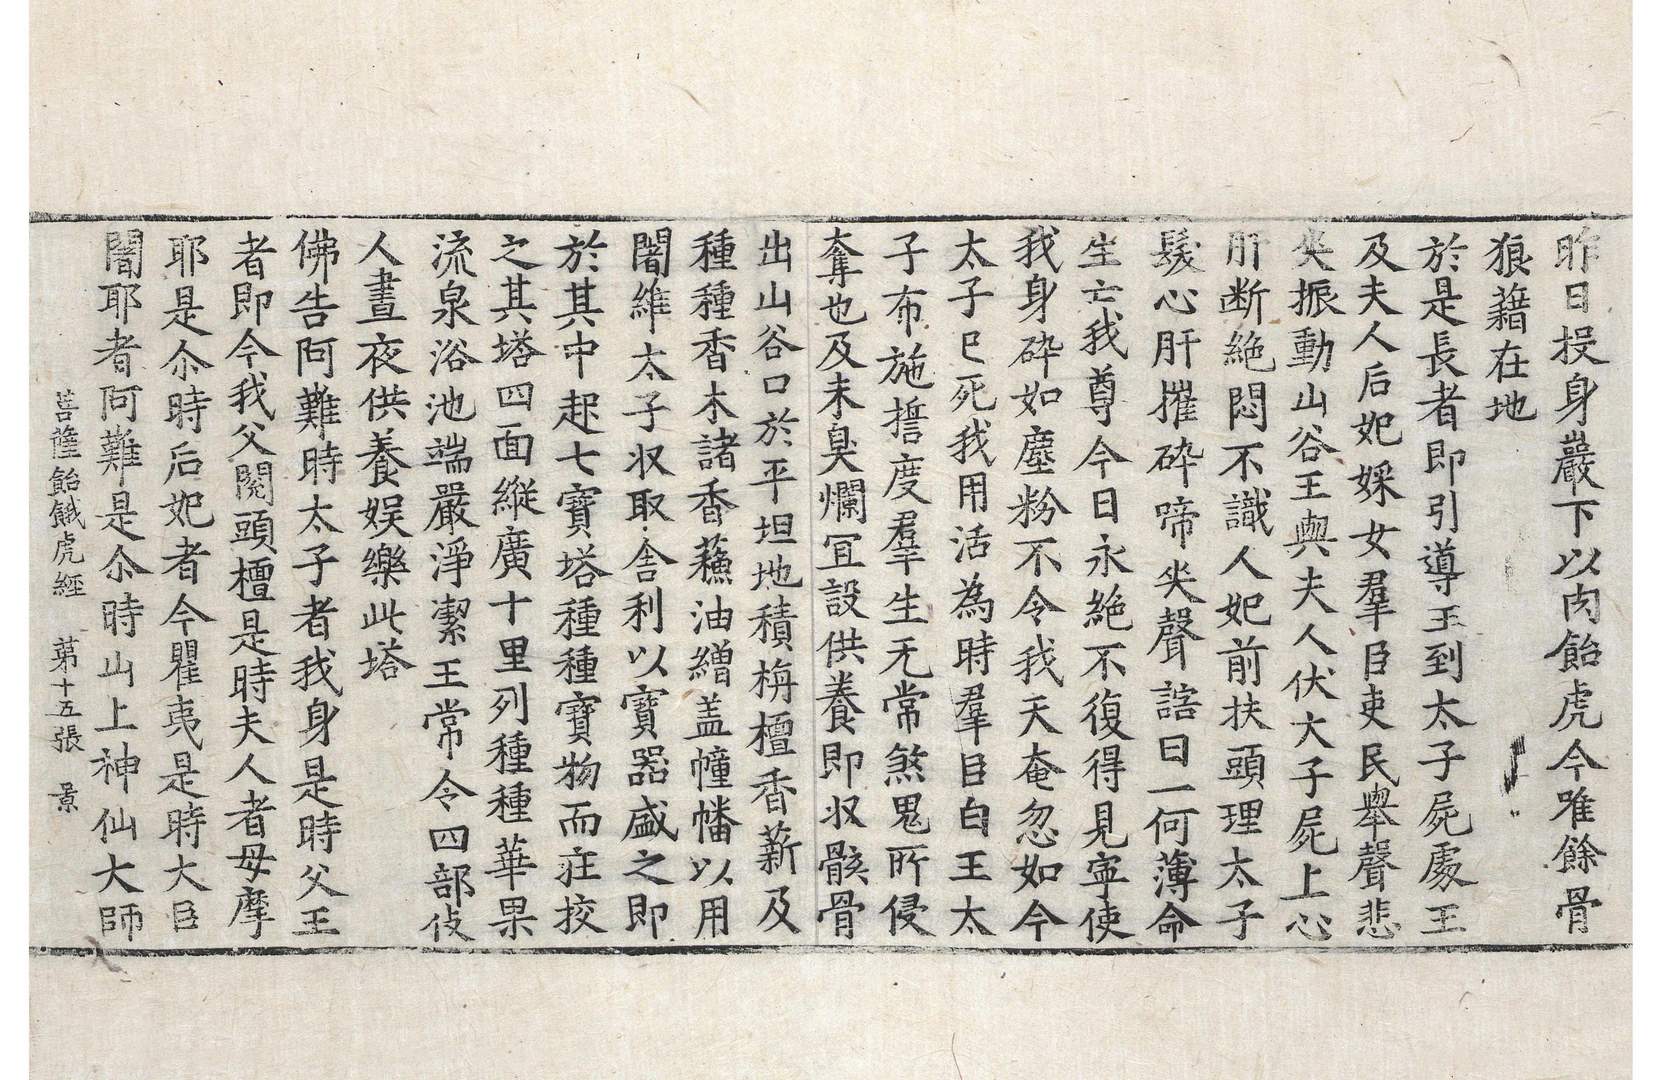 昨日投身巖下以肉飴虎今唯餘骨
狼藉在地
於是長者即引導王到太子屍處王
及夫人后妃婇女羣臣吏民舉聲悲
哭振動山谷王與夫人伏太子屍上心
肝断絶悶不識人妃前扶頭理太子
髮心肝摧碎啼哭聲諮曰一何薄命
生亡我尊今日永絶不復得見寧使
我身碎如塵粉不令我天奄忽如今
太子已死我用活為時羣臣白王太
子布施誓度羣生无常煞鬼所侵
奪也及未臭爛冝設供養即収骸骨
出山谷口於平坦地積栴檀香薪及
種種香木諸香蘓油繒盖幢幡以用
闍維太子収取舍利以寶器盛之即
於其中起七寶塔種種寶物而疘挍
之其塔四面縱廣十里列種種華果
流泉浴池端嚴淨潔王常令四部伎
人晝夜供養娛樂此塔
佛告阿難時太子者我身是時父王
者即今我父閱頭檀是時夫人者母摩
耶是尒時后妃者今瞿夷是時大臣
闍耶者阿難是尒時山上神仙大師
菩薩飴餓虎經　第十五張　景